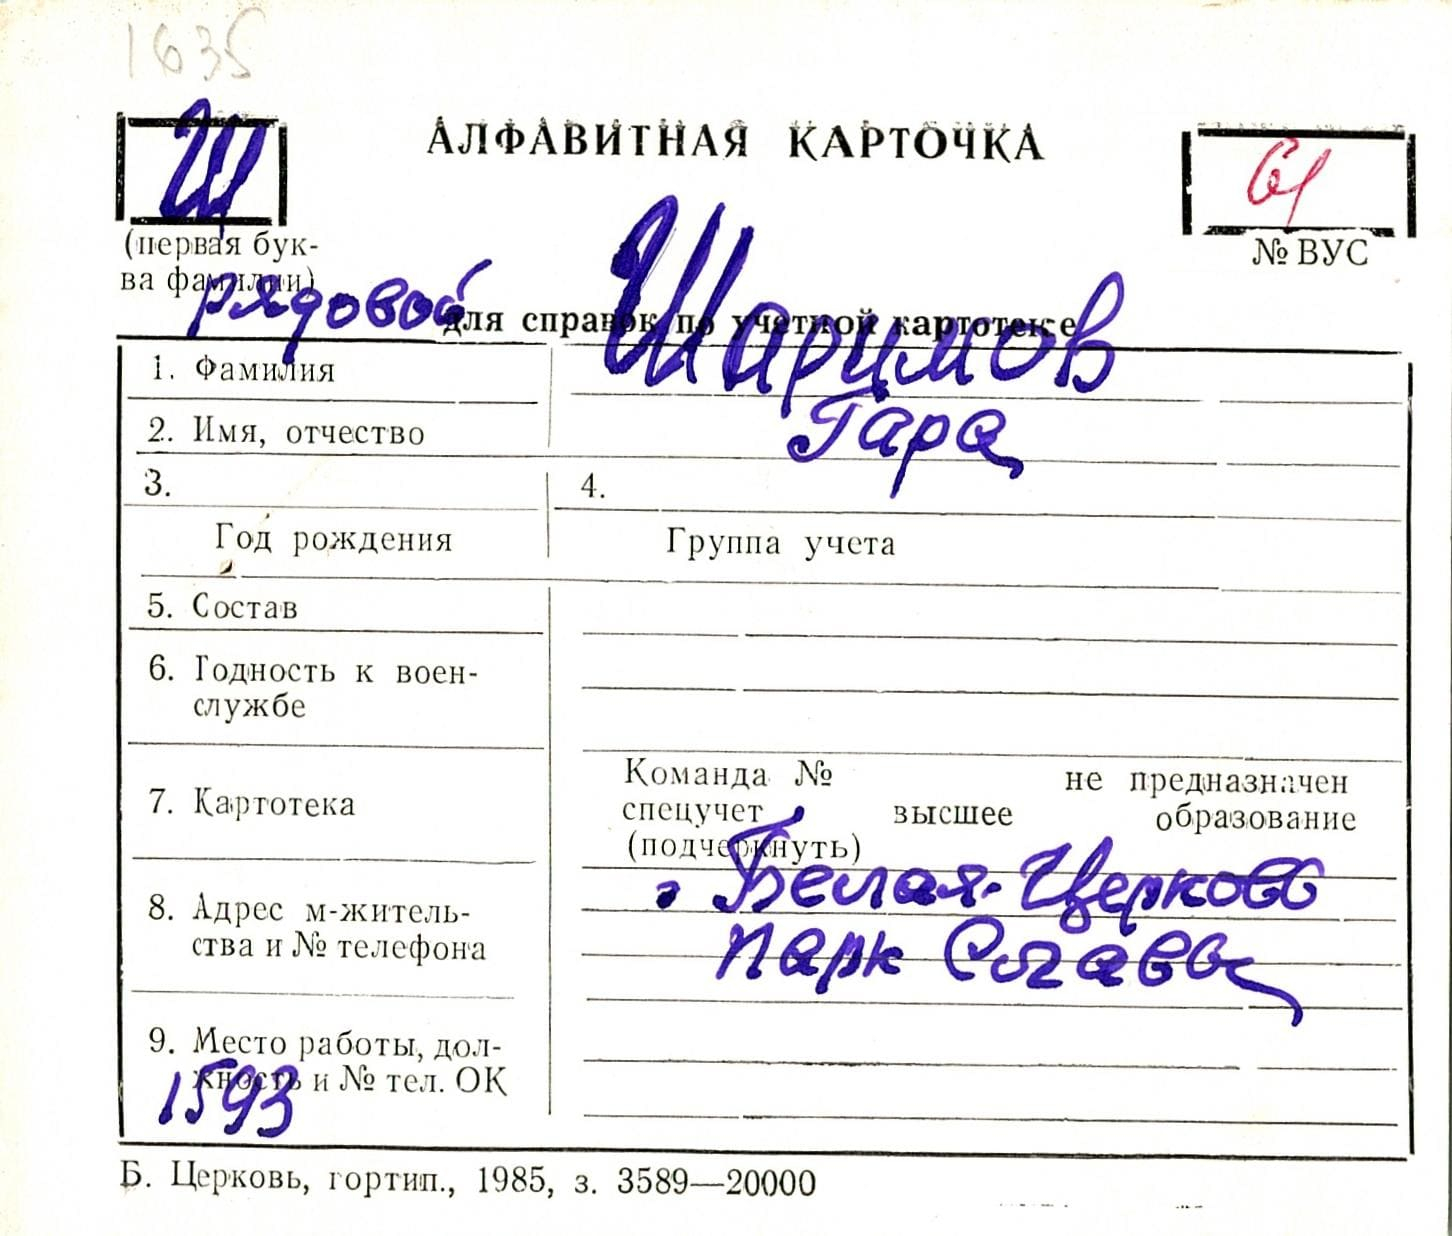 1635
Ш
АЛФАВИТНАЯ КАРТОЧКА
61
(первая бук-
ва фамилии)
№ ВУС
рядовой
для справок по учетной картотеке
1. Фамилия
Шаримов
2. Имя, отчество
Гара
3.
4.
Год рождения
Группа учета
5. Состав
6. Годность к воен-
службе
7. Картотека
Команда № не предназначен
спецучет высшее образование
(подчеркнуть)
8. Адрес м-житель-
ства и № телефона
г Белая-Церковь
парк
9. Место работы, дол-
жность и № тел. ОК
1593
Б. Церковь, гортип., 1985, з. 3589—20000